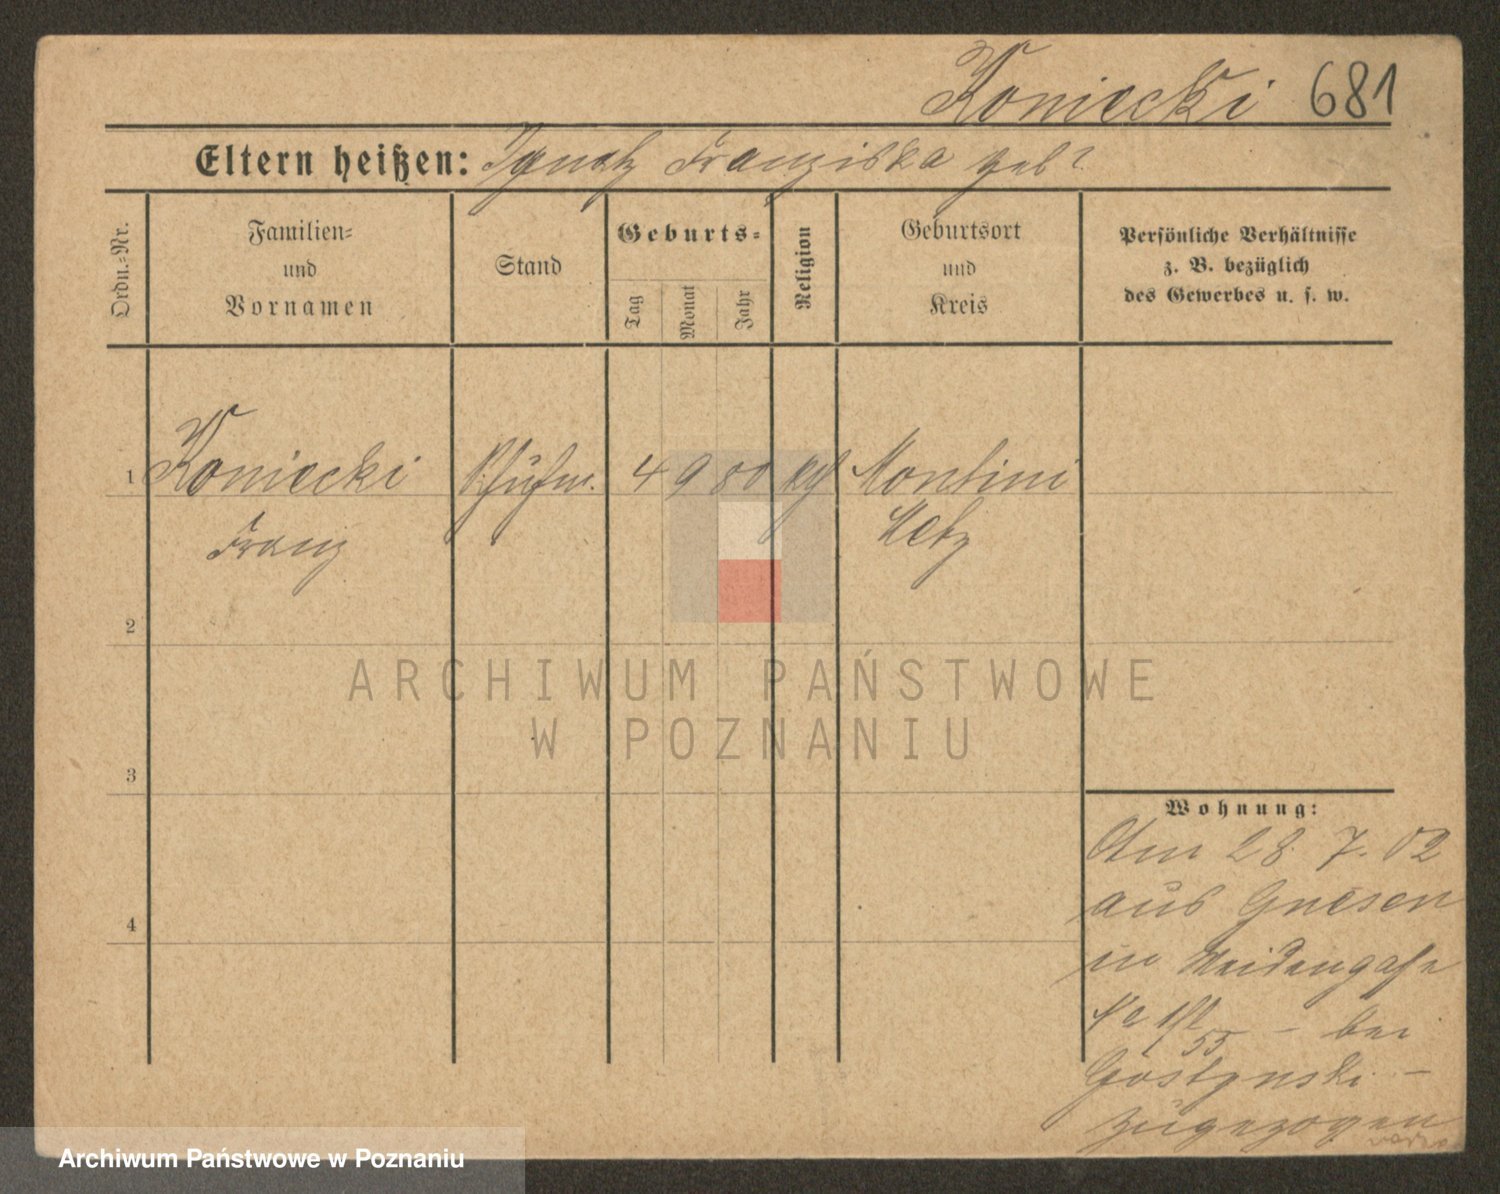 Koniecki 681
Eltern heißen: Ignatz Franziska geb?
Ordn.=Nr.
Familien=
und
Vornamen
Stand
Geburts=
Tag
Monat
Jahr
Religion
Geburtsort
und
Kreis
Persönliche Verhältnisse
z. B. bezüglich
des Gewerbes u. s. w.
1 Koniecki 4 9 80 kth Montini
Franz Metz
2
3
4
ARCHIWUM PAŃSTWOWE
W POZNANIU
Wohnung:
Am 28. 7. 02
aus Gnesen
in Weidengasse
bei
Gostynski –
zugezogen
Archiwum Państwowe w Poznaniu